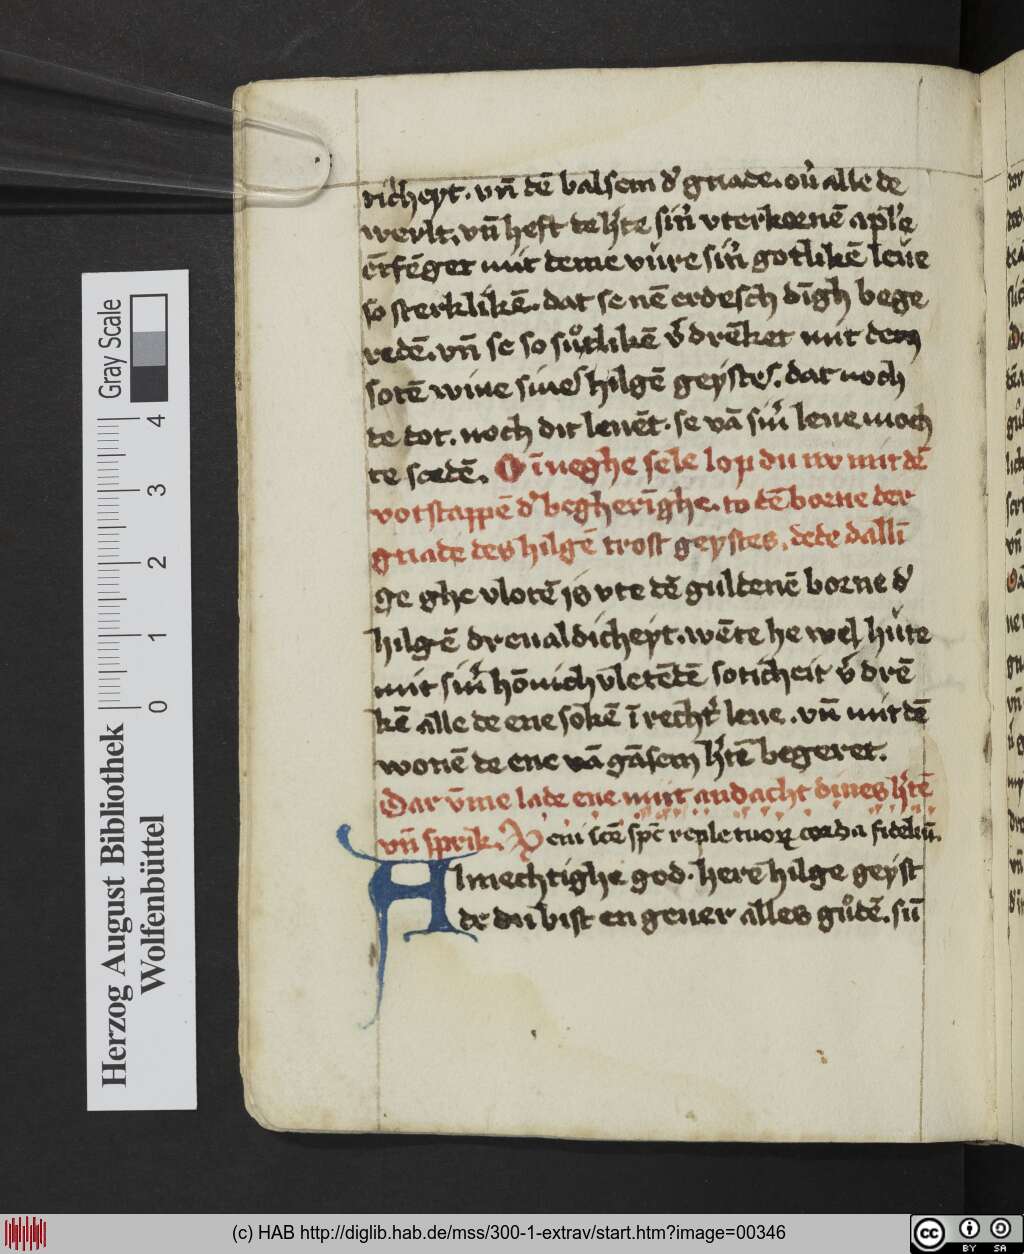 richeyt. vn̄ dē balsem d' gnade. ou' alle de
werlt. vn̄ heft de h'te sin' vterkoenē aple
ētfēget mit deme vure sin' gotlikē leue
so sterklikē. dat se nē erdesch dīgh bege
redē. vn̄ se so sůtlikē v'drēket mit dem
sotē wine sines hilgē geystes. dat noch
de dot. noch dit leuēt. se vā sin' leue moch
te scedē. O īneghe sele lop du nv mit dē
votstappē d' begherīghe. to dē borne der
gnade des hilgē trost geystes. dede dallī
ge ghe vlotē is vte dē guldenē borne d'
hilgē dreualdicheyt. wēte he wel hute
mit sin' hōnich vletēdē soticheit v'drē
kē alle de ene sokē ī recht' leue. vn̄ mit dē
wonē de ene vā gāsem h'tē begeret.
Dar v̄me lade ene mit andacht dines h'tē
vn̄ sprik. Veni scē spc reple tuoꝝ corda fidelīu.
Almechtighe god. here hilge geyst
de du bist en geuer alles gůdē. sū
Herzog August Bibliothek
Wolfenbüttel
0 1 2 3 4
Gray Scale
(c) HAB http://diglib.hab.de/mss/300-1-extrav/start.htm?image=00346
cc BY SA